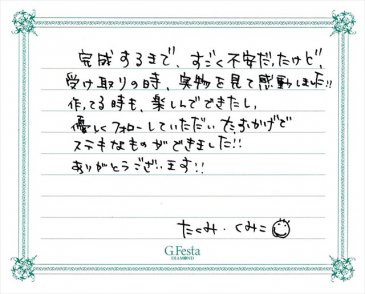 完成するまで、すごく不安だったけど、
受け取りの時、実物を見て感動しました!!
作ってる時も、楽しんでできたし、
優しくフォローしていただいたおかげで
ステキなものができました!!
ありがとうございます!!
たくみ・くみこ
G.Festa
DIAMOND